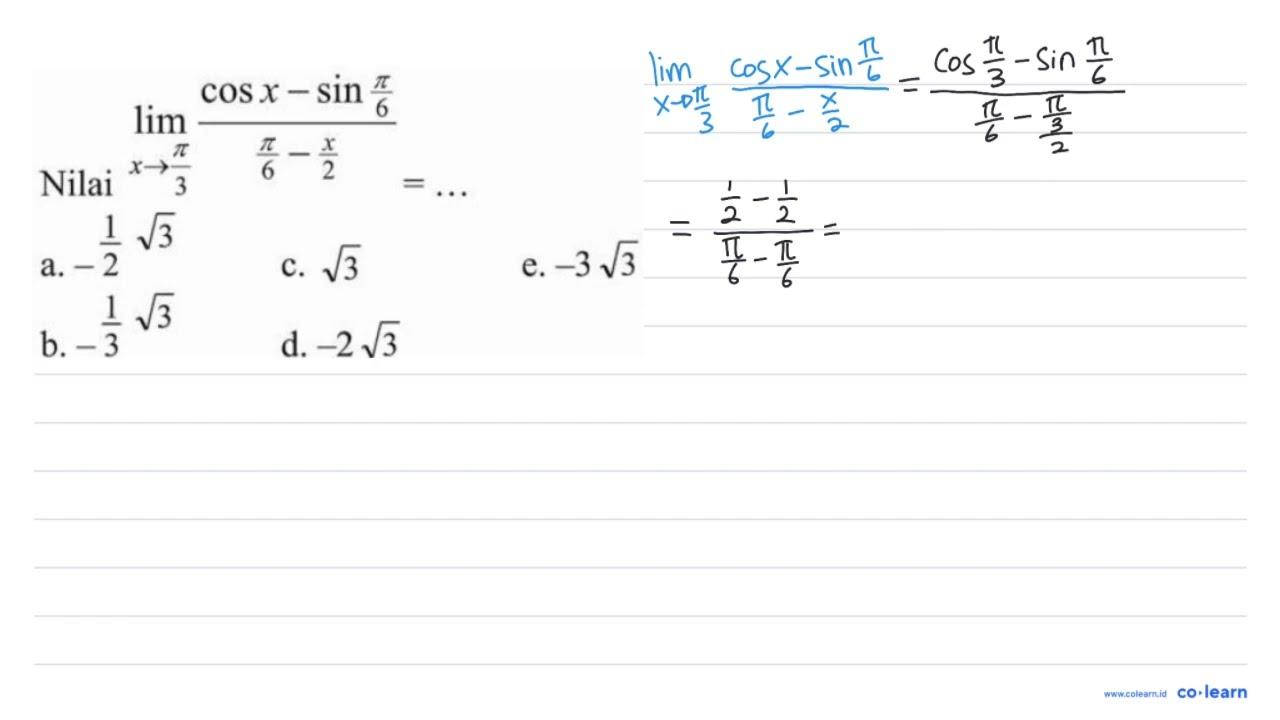 Nilai lim x→π/3 (cos x − sin π/6)/(π/6 − x/2) = ...
a. −1/2 √3
c. √3
e. −3√3
b. −1/3 √3
d. −2√3
lim x→π/3 (cos x − sin π/6)/(π/6 − x/2) = (cos π/3 − sin π/6)/(π/6 − π/3/2)
= (1/2 − 1/2)/(π/6 − π/6) =
www.colearn.id co·learn